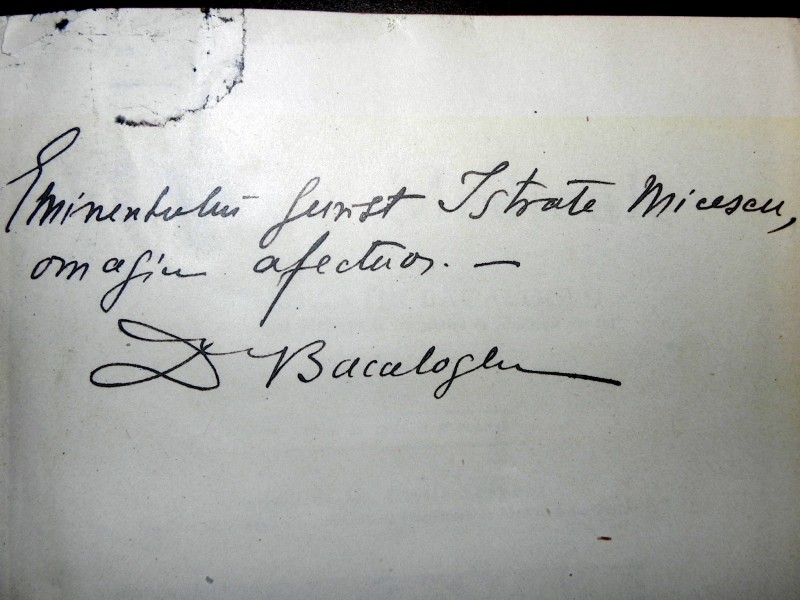 Eminentului jurist Istrate Micescu,
omagiu afectuos. —
Dr Bacaloglu